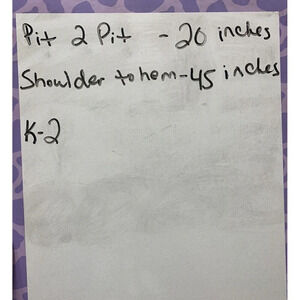 Pit 2 Pit - 20 inches
Shoulder to hem - 45 inches
K-2